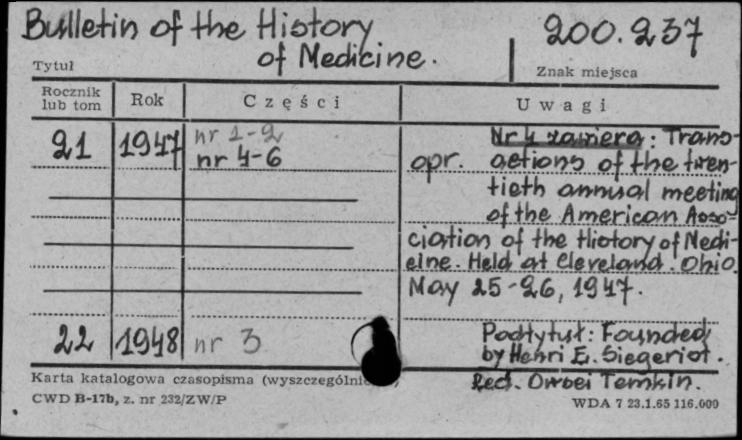 Bulletin of the History
of Medicine.
200.237
Tytuł
Znak miejsca
Rocznik
lub tom
Rok
Części
Uwagi
21 1947 nr 1-2
nr 4-6
opr.
Nr 4 zawiera: Trans-
actions of the twen-
tieth annual meeting
of the American Asso-
ciation of the History of Medi-
cine. Held at Cleveland. Ohio.
May 25-26, 1947.
22 1948 nr 3
Podtytuł: Founded
by Henri E. Siegerist.
Red. Owsei Temkin.
Karta katalogowa czasopisma
CWD B-17b, z. nr 232/ZW/P
WDA 7 23.1.65 116.000